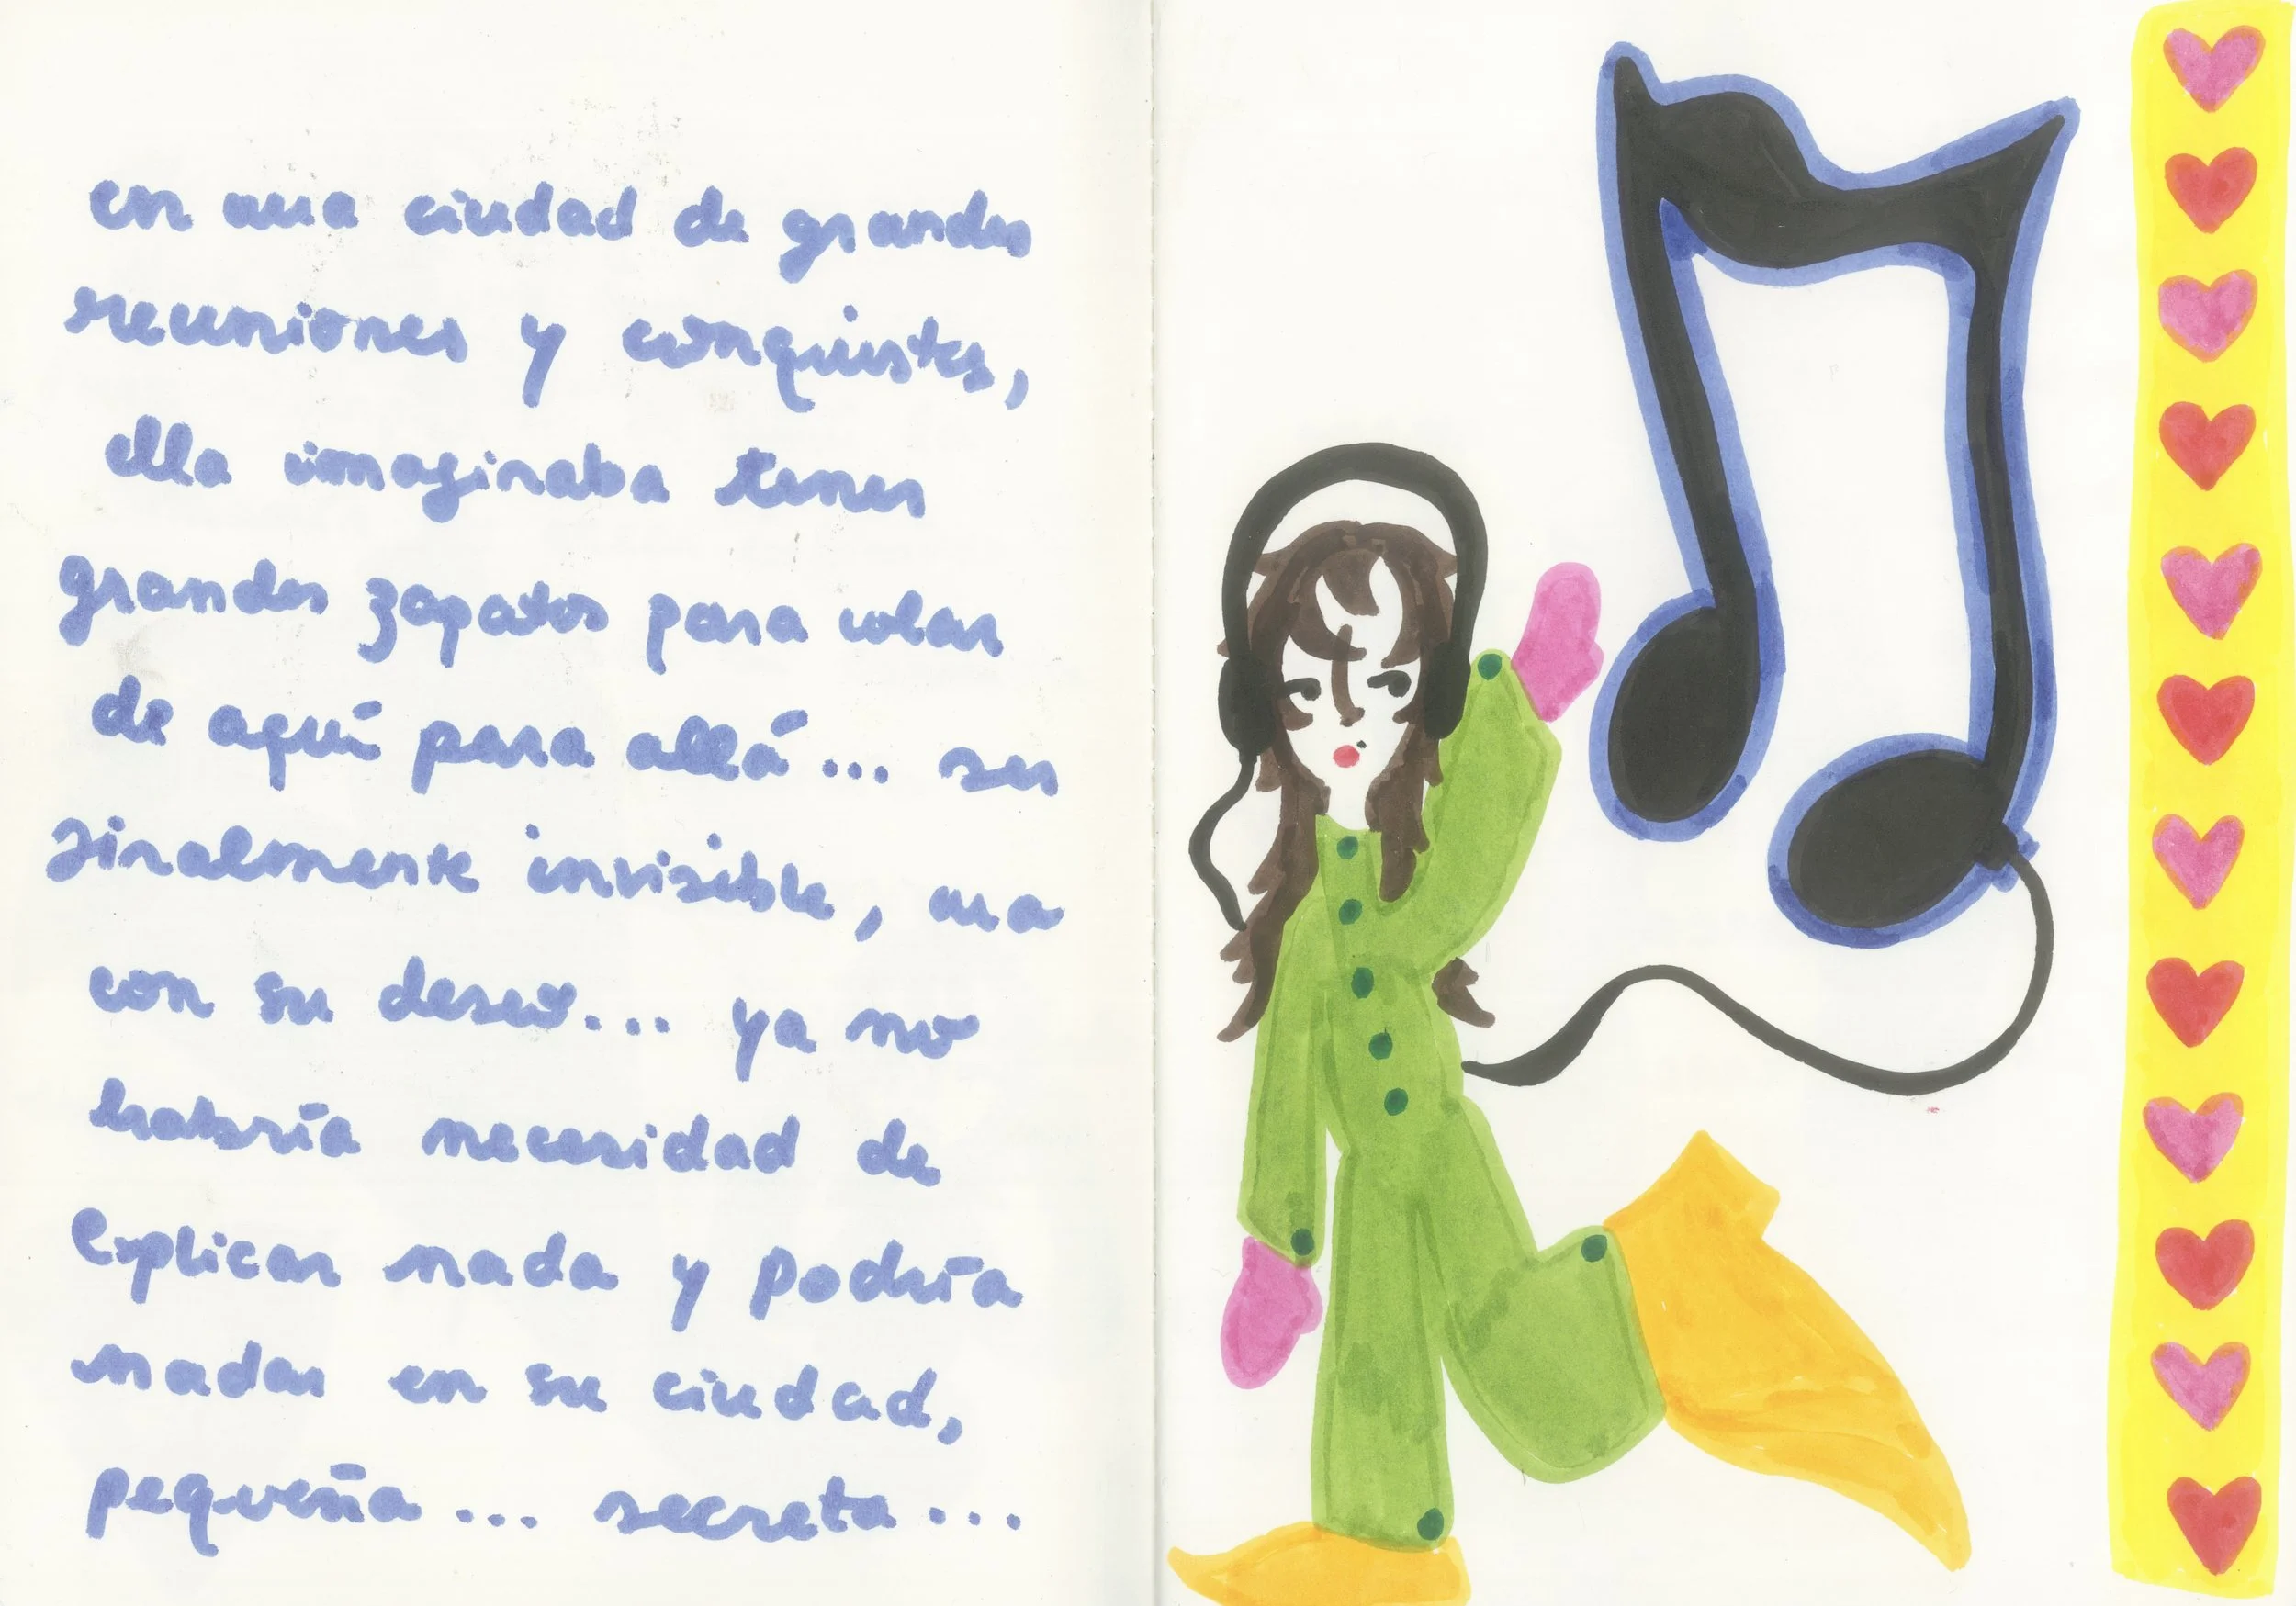 en una ciudad de grandes
reuniones y conquistas,
ella imaginaba tener
grandes zapatos para volar
de aquí para allá... ser
finalmente invisible, una
con su deseo... ya no
habría necesidad de
explicar nada y podría
nadar en su ciudad,
pequeña... secreta...